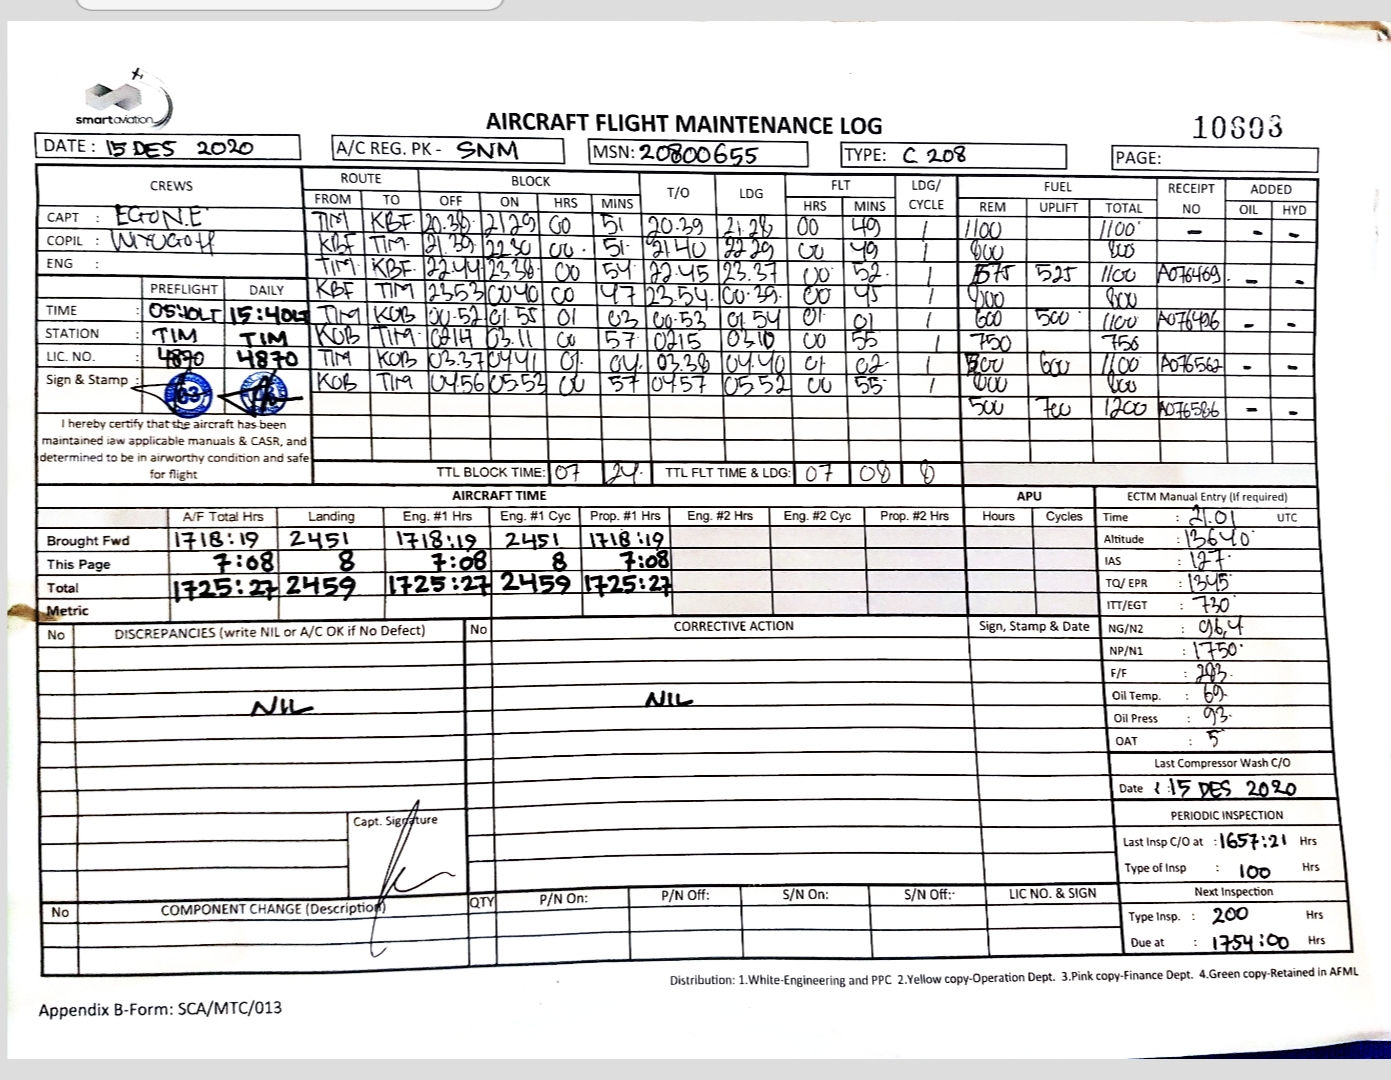 smartaviation
AIRCRAFT FLIGHT MAINTENANCE LOG
10803
DATE : 15 DES 2020 A/C REG. PK - SNM MSN: 20800655 TYPE: C 208 PAGE:
CREWS ROUTE BLOCK T/O LDG FLT LDG/ CYCLE FUEL RECEIPT NO ADDED
FROM TO OFF ON HRS MINS HRS MINS REM UPLIFT TOTAL OIL HYD
CAPT : EGON.E TIM KBF 20.38 21 29 00 51 20.39 21.28 00 49 1 1100 1100 - - -
COPIL : KBF TIM 21.39 22.30 00 51 21 40 22 29 00 49 1 800 800
ENG : TIM KBF 22.44 23.38 00 54 22.45 23.37 00 52 1 575 525 1100 A076469 - -
KBF TIM 2353 0040 00 47 23.54 00.39 00 45 1 800 800
PREFLIGHT DAILY
TIME : 05:10LT 15:40LT TIM KOB 00.52 01.55 01 03 00.53 01.54 01 01 1 600 500 1100 A076496 - -
STATION : TIM TIM KOB TIM 0214 03.11 00 57 0215 0310 00 55 1 750 750
LIC. NO. : 4870 4870 TIM KOB 03.37 0441 01 04 03.38 04.40 01 02 1 500 600 1100 A076562 - -
Sign & Stamp : KOB TIM 04.56 05 53 00 57 0457 05 52 00 55 1 800 800
500 700 1200 A076586 - -
I hereby certify that the aircraft has been
maintained iaw applicable manuals & CASR, and
determined to be in airworthy condition and safe
for flight
TTL BLOCK TIME: 07 24 TTL FLT TIME & LDG: 07 08 8
AIRCRAFT TIME APU ECTM Manual Entry (If required)
A/F Total Hrs Landing Eng. #1 Hrs Eng. #1 Cyc Prop. #1 Hrs Eng. #2 Hrs Eng. #2 Cyc Prop. #2 Hrs Hours Cycles Time : 21.01 UTC
Brought Fwd 1718:19 2451 1718:19 2451 1718:19 Altitude : 13640
This Page 7:08 8 7:08 8 7:08 IAS : 127
Total 1725:27 2459 1725:27 2459 1725:27 TQ/ EPR : 1345
Metric ITT/EGT : 730
No DISCREPANCIES (write NIL or A/C OK if No Defect) No CORRECTIVE ACTION Sign, Stamp & Date NG/N2 : 96,4
NP/N1 : 1750
F/F : 283
NIL NIL Oil Temp. : 69
Oil Press : 93
OAT : 5
Last Compressor Wash C/O
Date : 15 DES 2020
PERIODIC INSPECTION
Capt. Signature
Last Insp C/O at : 1657:21 Hrs
Type of Insp : 100 Hrs
Next Inspection
No COMPONENT CHANGE (Description) QTY P/N On: P/N Off: S/N On: S/N Off: LIC NO. & SIGN
Type Insp. : 200 Hrs
Due at : 1754:00 Hrs
Distribution: 1.White-Engineering and PPC 2.Yellow copy-Operation Dept. 3.Pink copy-Finance Dept. 4.Green copy-Retained in AFML
Appendix B-Form: SCA/MTC/013